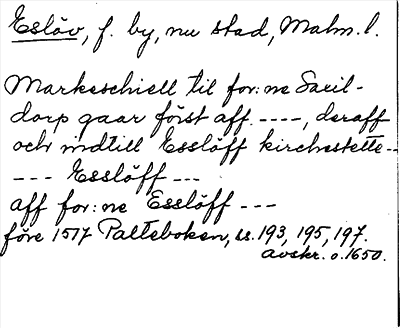 Eslöv, f. by, nu stad, Malm. l.
Markeschiell til for:ne Saxil-
dorp gaar först aff ----, deraff
och indtill Esslöff kirchestette--
--- Esslöff ---
aff for:ne Esslöff ---
före 1517 Palteboken, ss. 193, 195, 197.
avskr. o. 1650.